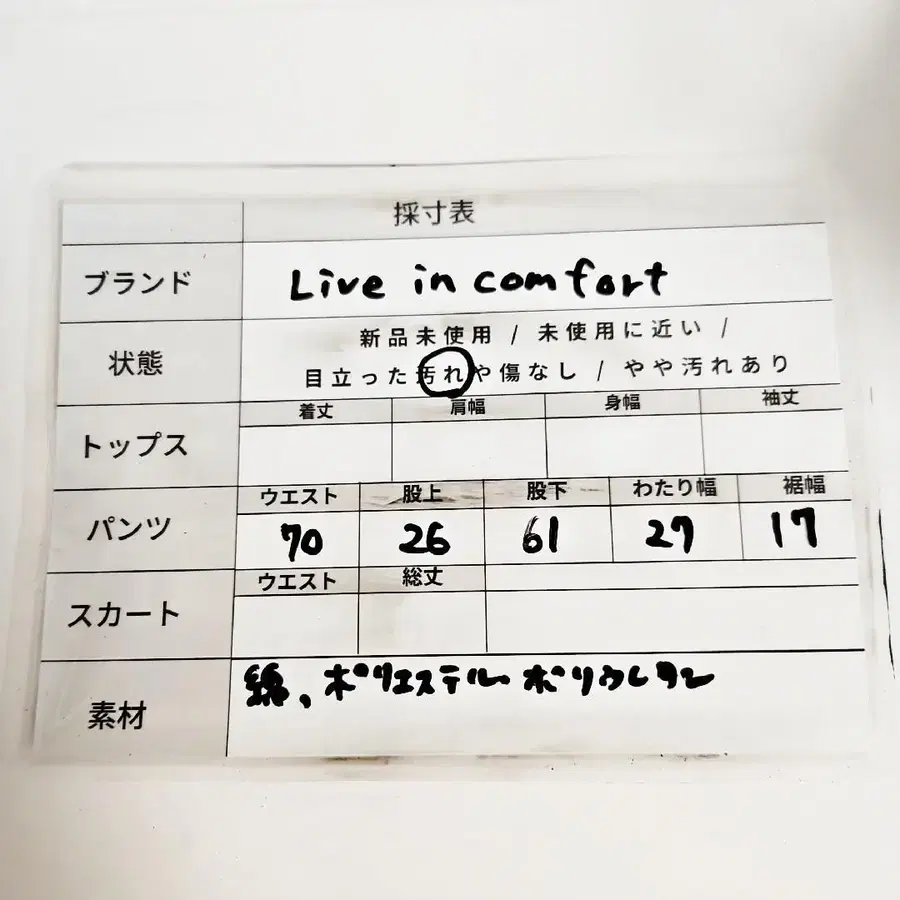 採寸表
ブランド Live in comfort
新品未使用 / 未使用に近い /
状態
目立った汚れや傷なし / やや汚れあり
着丈 肩幅 身幅 袖丈
トップス
ウエスト 股上 股下 わたり幅 裾幅
パンツ 70 26 61 27 17
ウエスト 総丈
スカート
綿、ポリエステル ポリウレタン
素材